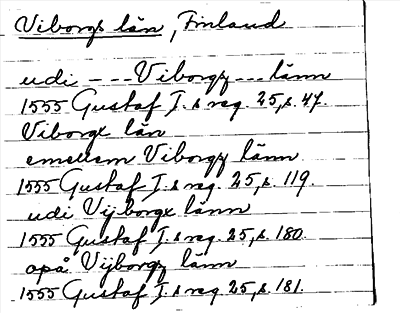 Viborgs län, Finland
udi - - - Viborgz - - - länn
1555 Gustaf I.s reg. 25, s. 47.
Viborgx län
emellem Viborgz länn
1555 Gustaf I.s reg. 25, s. 119.
udi Vijborgx länn
1555 Gustaf I.s reg. 25, s. 180.
opå Vijborgz länn
1555 Gustaf I.s reg. 25, s. 181.